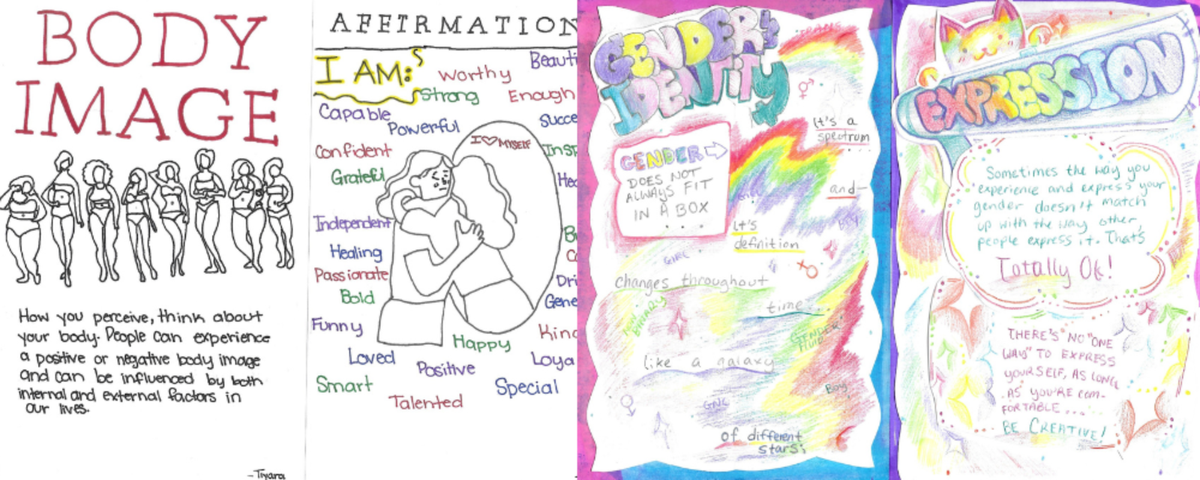 BODY
IMAGE
How you perceive, think about
your body. People can experience
a positive or negative body image
and can be influenced by both
internal and external factors in
our lives.
-Tiyara
AFFIRMATION
I AM:
Worthy
Strong
Enough
Capable
Powerful
Confident
Grateful
I ♡ MYSELF
Independent
Healing
Passionate
Bold
Funny
Happy
Loved
Positive
Smart
Talented
Special
GENDER
IDENTITY
It's a
spectrum
GENDER
DOES NOT
ALWAYS FIT
IN A BOX
and
it's
definition
GIRL
BOY
changes throughout
time
GENDER
FLUID
like a galaxy
Boy
GNC
of different
stars;
EXPRESSION
Sometimes the way you
experience and express your
gender doesn't match
up with the way other
people express it. That's
Totally Ok!
THERE'S "NO "ONE
WAY" TO EXPRESS
YOURSELF, AS LONG
AS YOU'RE COM-
FORTABLE...
BE CREATIVE!